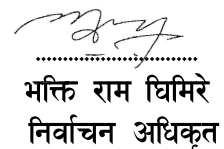 भक्ति राम घिमिरे
निर्वाचन अधिकृत